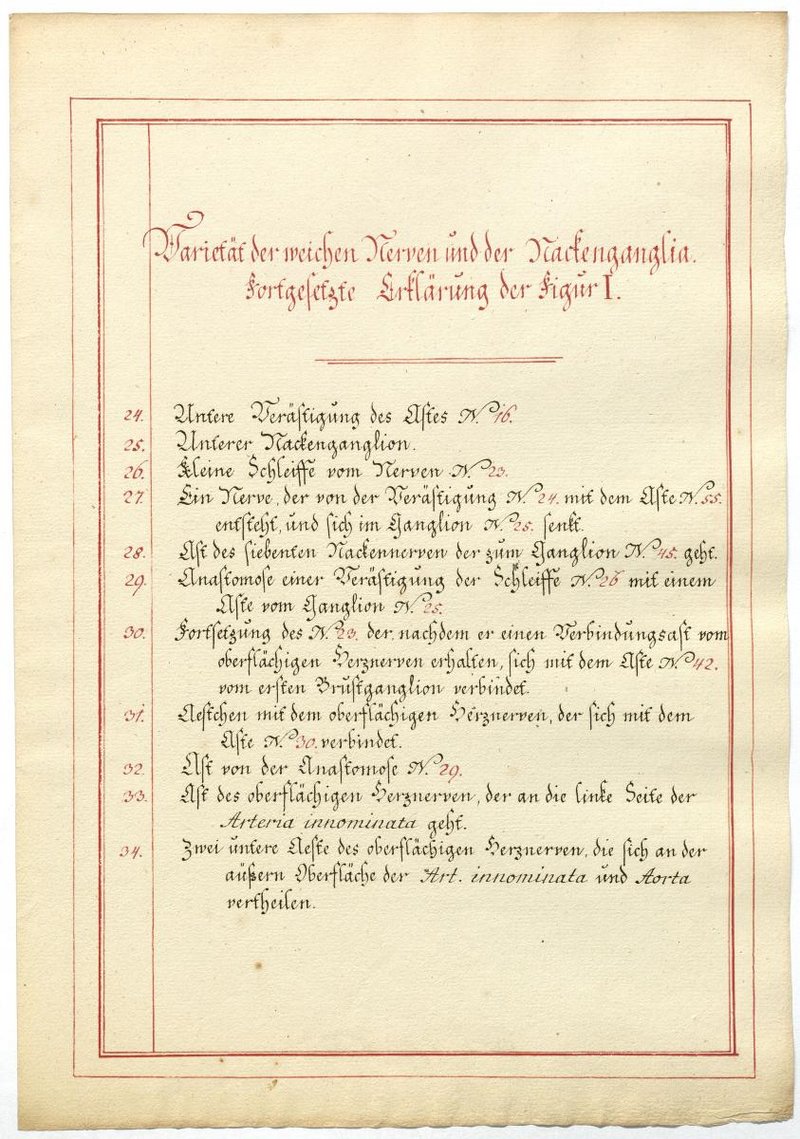 Varietät der weichen Nerven und der Nackenganglia.
Fortgesetzte Erklärung der Figur I.
24. Untere Verästigung des Astes N. 16.
25. Unterer Nackenganglion.
26. Kleine Schleiffe vom Nerven N. 23.
27. Ein Nerve, der von der Verästigung N. 24. mit dem Aste N. 55.
entsteht, und sich im Ganglion N. 25. senkt.
28. Ast des siebenten Nackennerven der zum Ganglion N. 45. geht.
29. Anastomose einer Verästigung der Schleiffe N. 26 mit einem
Aste vom Ganglion N. 25.
30. Fortsetzung des N. 23. der, nachdem er einen Verbindungsast vom
oberflächigen Herznerven erhalten, sich mit dem Aste N. 42.
vom ersten Brustganglion verbindet.
31. Aestchen mit dem oberflächigen Herznerven, der sich mit dem
Aste N. 30. verbindet.
32. Ast von der Anastomose N. 29.
33. Ast des oberflächigen Herznerven, der an die linke Seite der
Arteria innominata geht.
34. Zwei untere Aeste des oberflächigen Herznerven, die sich an der
außern Oberfläche der Art. innominata und Aorta
vertheilen.